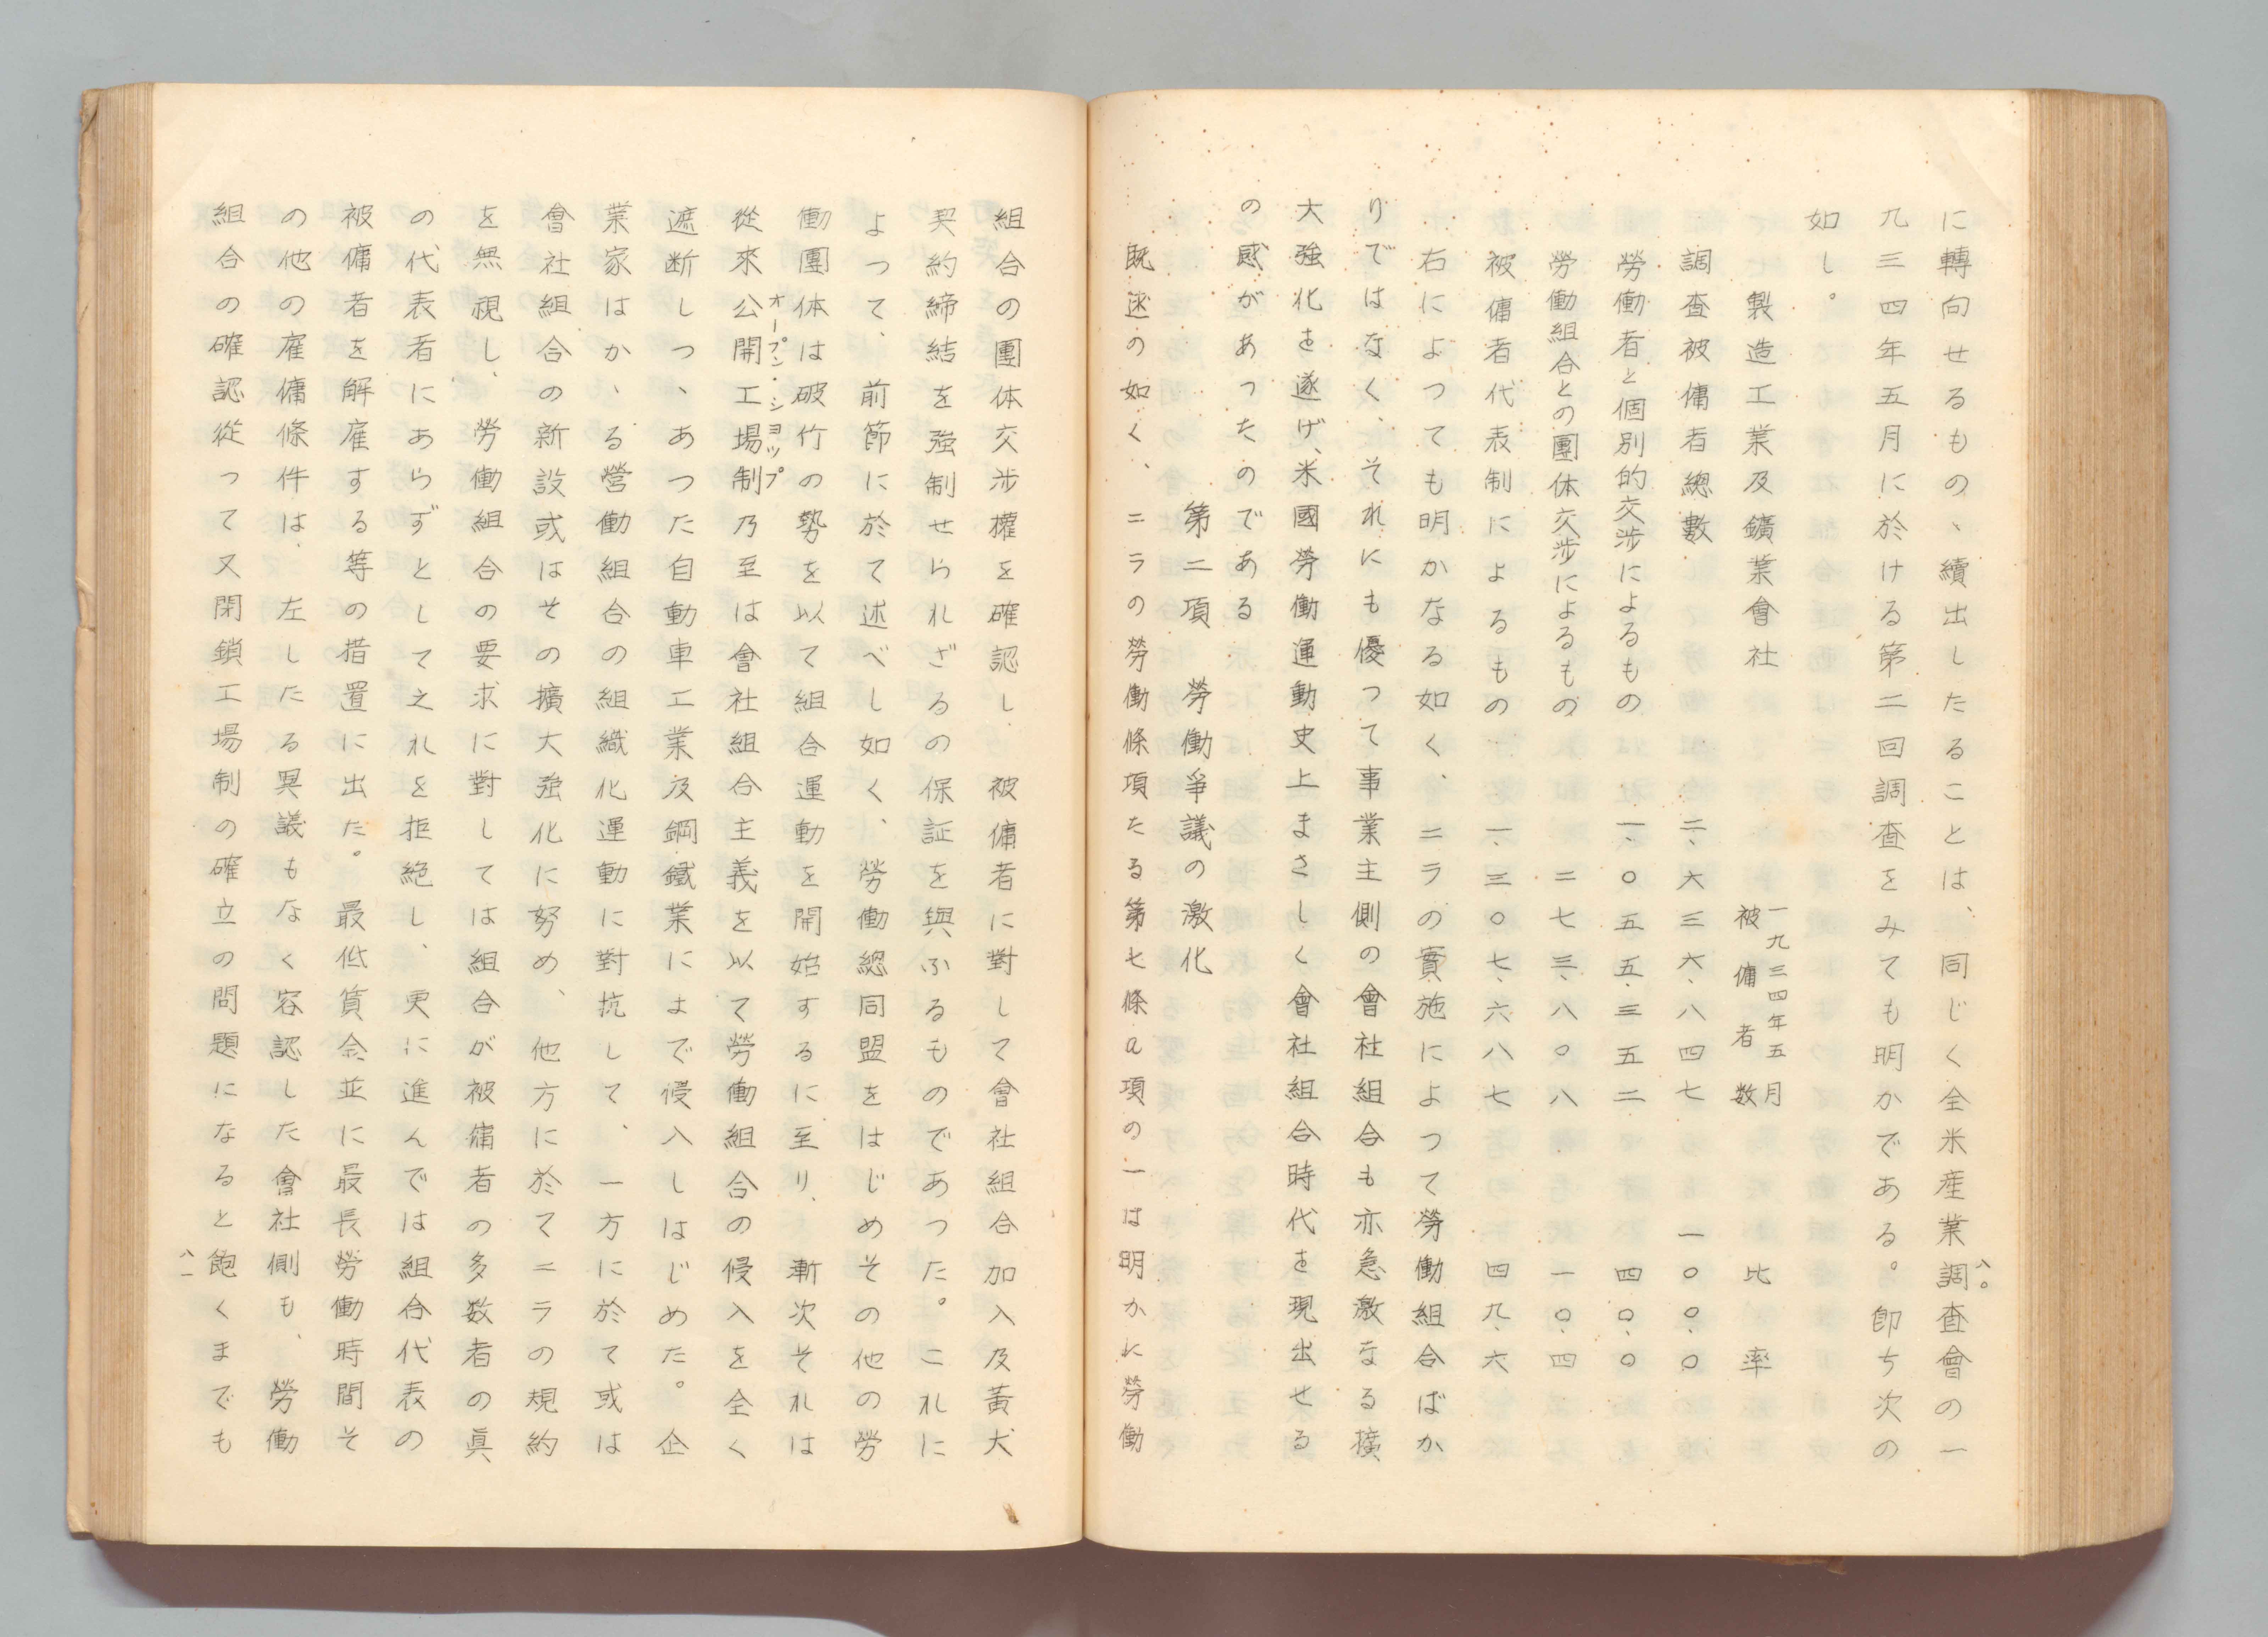 八〇
に轉向せるもの、續出したることは、同じく全米産業調査會の一
九三四年五月に於ける第二回調査をみても明かである。卽ち次の
如し。
製造工業及鑛業會社 一九三四年五月 被傭者数 比率
調査被傭者總數 二、六三六、八四七 一〇〇、〇
勞働者と個別的交渉によるもの 一、〇五五、三五二 四〇、〇
勞働組合との團体交渉によるもの 二七三、八〇八 一〇、四
被傭者代表制によるもの 一、三〇七、六八七 四九、六
右によつても明かなる如く、ニラの實施によつて勞働組合ばか
りではなく、それにも優つて事業主側の會社組合も亦急激なる擴
大強化を遂げ、米國勞働運動史上まさしく會社組合時代を現出せる
の感があつたのである
第二項 勞働爭議の激化
既述の如く、ニラの勞働條項たる第七條a項の一は明かに勞働
組合の團体交渉權を確認し、被傭者に對して會社組合加入及黃犬
契約締結を強制せられざるの保証を與ふるものであつた。これに
よつて、前節に於て述べし如く、勞働總同盟をはじめその他の勞
働團体は破竹の勢を以て組合運動を開始するに至り、漸次それは
オープン・ショップ
從來公開工場制乃至は會社組合主義を以て勞働組合の侵入を全く
遮断しつ、あつた自動車工業及鋼鐵業にまで侵入しはじめた。企
業家はか、る營働組合の組織化運動に對抗して、一方に於て或は
會社組合の新設或はその擴大強化に努め、他方に於てニラの規約
を無視し、勞働組合の要求に對しては組合が被傭者の多数者の眞
の代表者にあらずとして之れを拒絕し、更に進んでは組合代表の
被傭者を解雇する等の措置に出た。最低賃金並に最長勞働時間そ
の他の雇傭條件は、左したる異議もなく容認した會社側も、勞働
組合の確認從つて又閉鎖工場制の確立の問題になると飽くまでも
八一